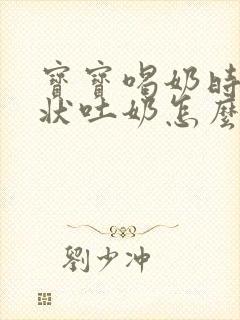 寶寶喝奶時
狀吐奶怎麼
劉少冲